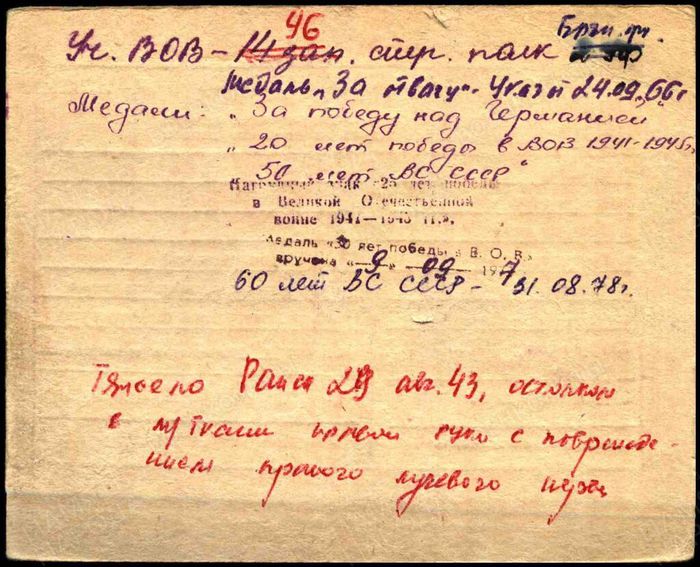 46
Уч. ВОВ – зап. стр. полк Брян. фр.
Медаль „За отвагу" - Указ от 24.09.66г.
Медали: „За победу над Германией"
„20 лет победы в ВОВ 1941-1945гг.
„50 лет ВС СССР"
Нагрудный знак «25 лет победы
в Великой Отечественной
войне 1941—1945 гг.».
Медаль «30 лет победы в В. О. В.»
вручена «9» 09 197
60 лет ВС СССР – 31.08.78г.
Тяжело Ранен авг. 43, осколком
в м/ткани правой руки с поврежде-
нием правого лучевого нерва